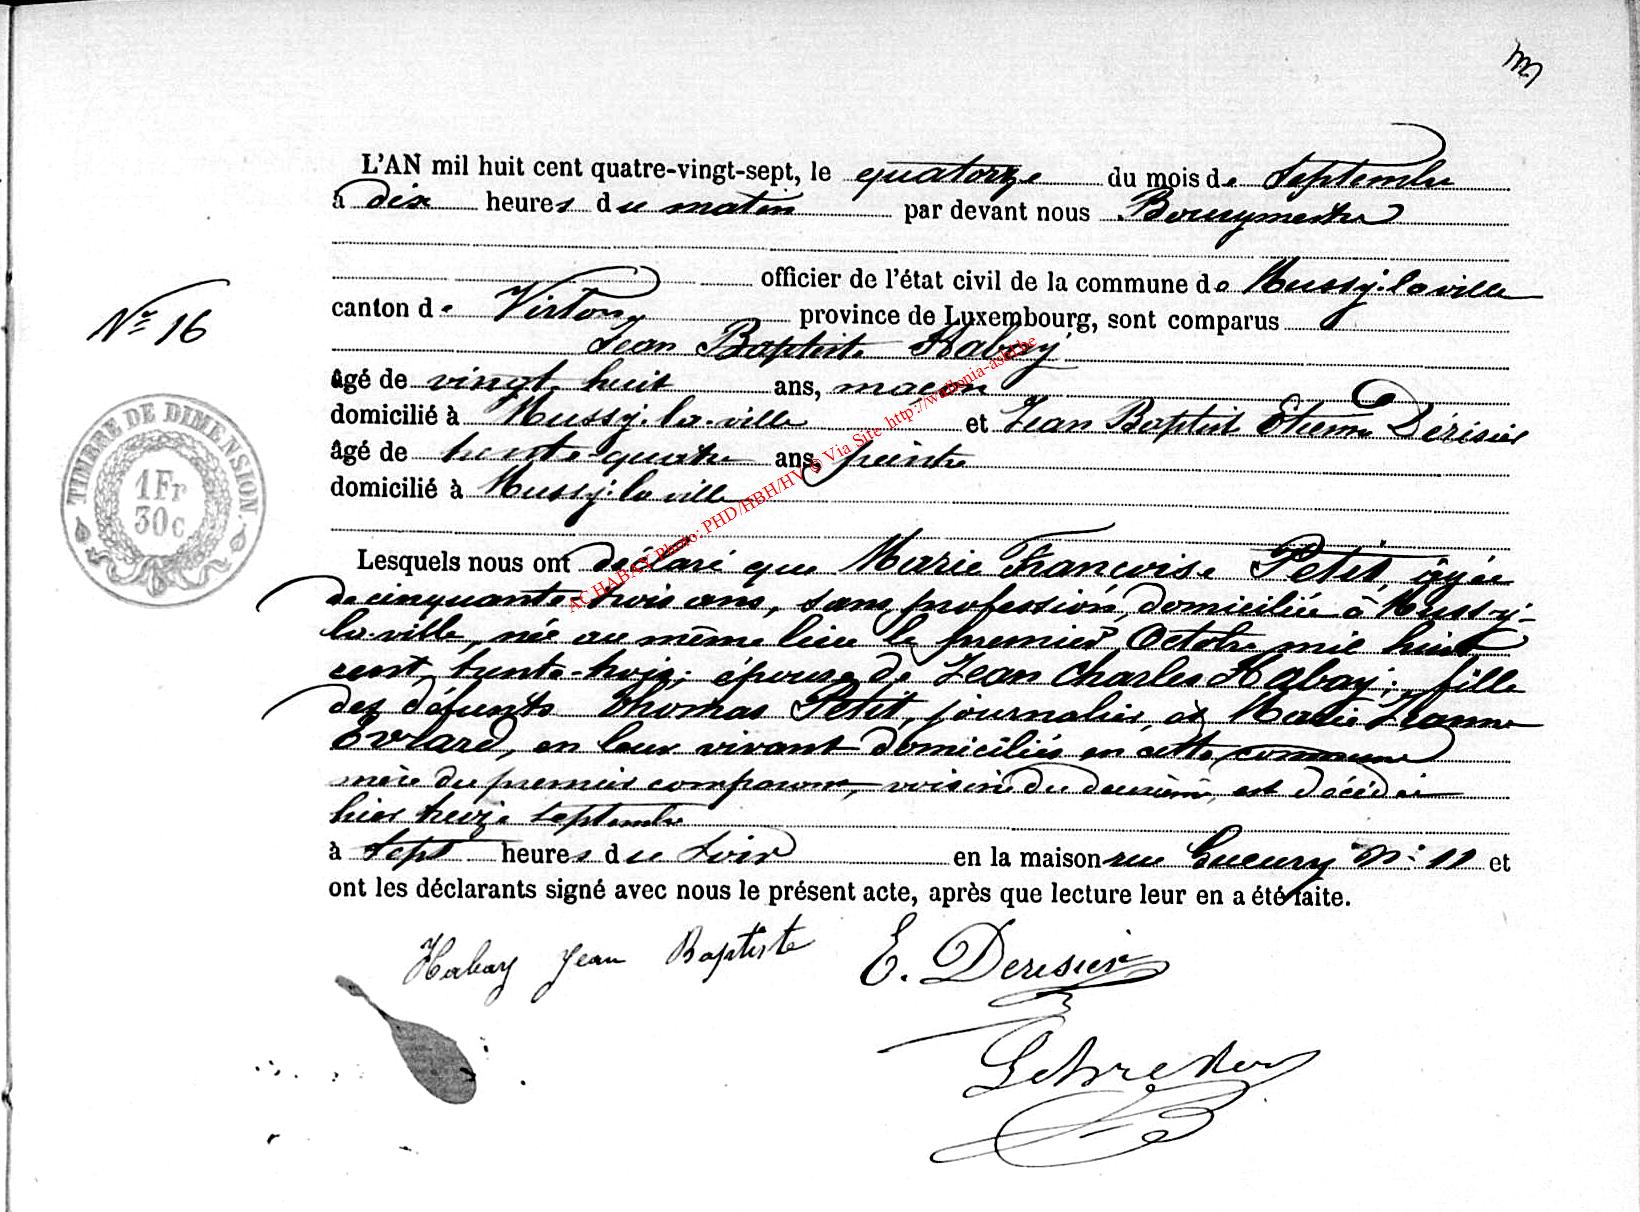 L'AN mil huit cent quatre-vingt-sept, le quatorze du mois de Septembre
à dix heures du matin par devant nous Bourgmestre
officier de l'état civil de la commune de Mussy-la-ville
canton de Virton, province de Luxembourg, sont comparus
Jean Baptiste Habay
âgé de vingt huit ans, maçon
domicilié à Mussy-la-ville et Jean Baptist Etienne Dérisier
âgé de trente-quatre ans, peintre
domicilié à Mussy-la ville
Lesquels nous ont déclaré que Marie Françoise Petit, âgée
de cinquante-trois ans, sans profession, domiciliée à Mussy-
la-ville, née au même lieu le premier Octobre mil huit
cent trente-trois; épouse de Jean Charles Habay; fille
des défunts Thomas Petit, journalier, et Marie Jeanne
Evrard, en leur vivant domiciliés en cette commune
mère du premier comparant, voisine du deuxième, est décédée
hier treize septembre
à sept heures du soir en la maison rue N: 11 et
ont les déclarants signé avec nous le présent acte, après que lecture leur en a été faite.
Nr 16
TIMBRE DE DIMENSION.
1 Fr
30 c
ACHABAY Photo: PHD/HBH/HV © Via Site http://wallonia-asbl.be
Habay Jean Baptiste E. Derisier